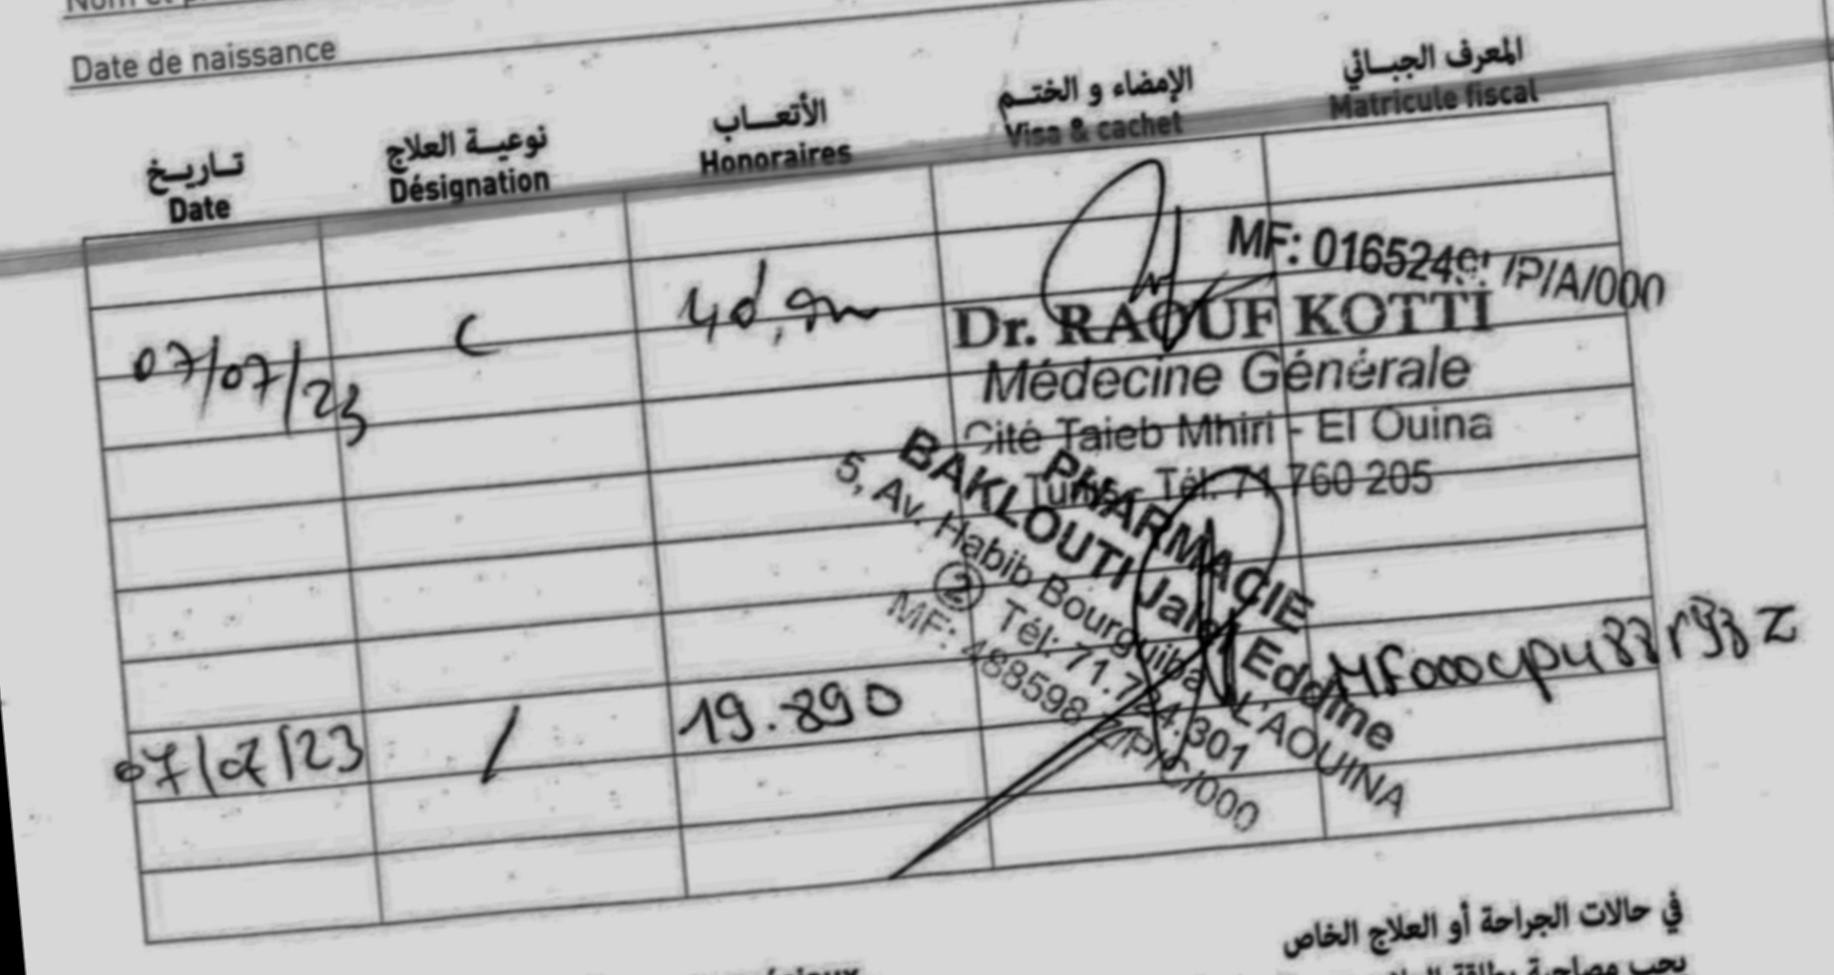 Date de naissance
تاريخ
Date
نوعية العلاج
Désignation
الأتعاب
Honoraires
الإمضاء و الختم
Visa & cachet
المعرف الجبائي
Matricule fiscal
07/07/23
C
MF: 0165249 /P/A/000
Dr. RAOUF KOTTI
Médecine Générale
Cité Taieb Mhiri - El Ouina
Tunis - Tél. 71 760 205
PHARMACIE
BAKLOUTI Jalel Eddine
5, Av. Habib Bourguiba L'AOUINA
2 Tél: 71.724.301
MF: 488598 Z/P/C/000
07/07/23
/
19.890
في حالات الجراحة أو العلاج الخاص